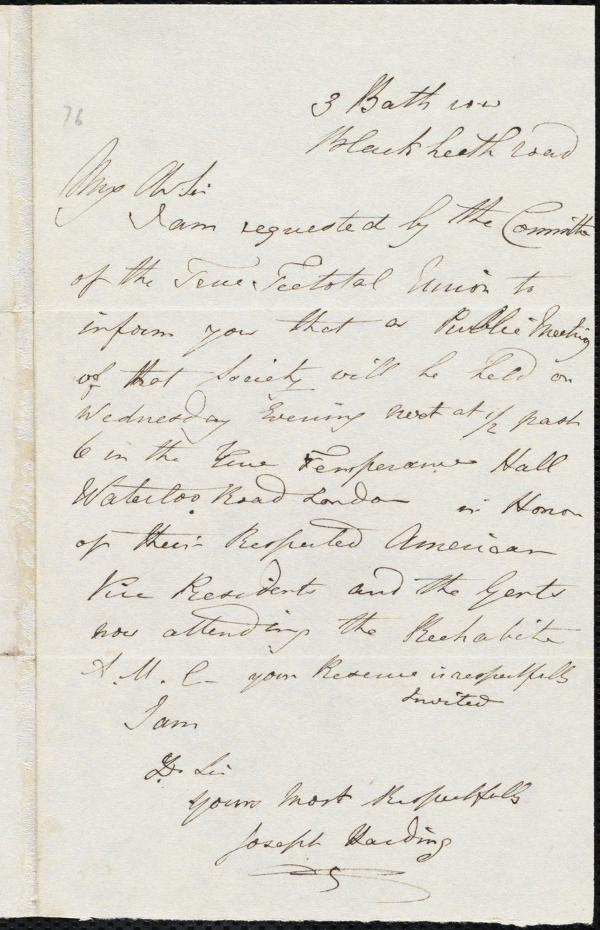 76
3 Bath row
Blackheath road
Dr Sir
I am requested by the Committe
of the True Teetotal Union to
inform you that a Public Meeting
of that Society will be held on
Wednesday Evening next at 1/2 past
6 in the True Temperance Hall
Waterloo Road London in Honor
of their Respected American
Vice Residents and the Gents
now attending the Rechabite
A. M. C - your Presence is respectfully
Invited
I am
Dr Sir
yours most Respectfully
Joseph Harding